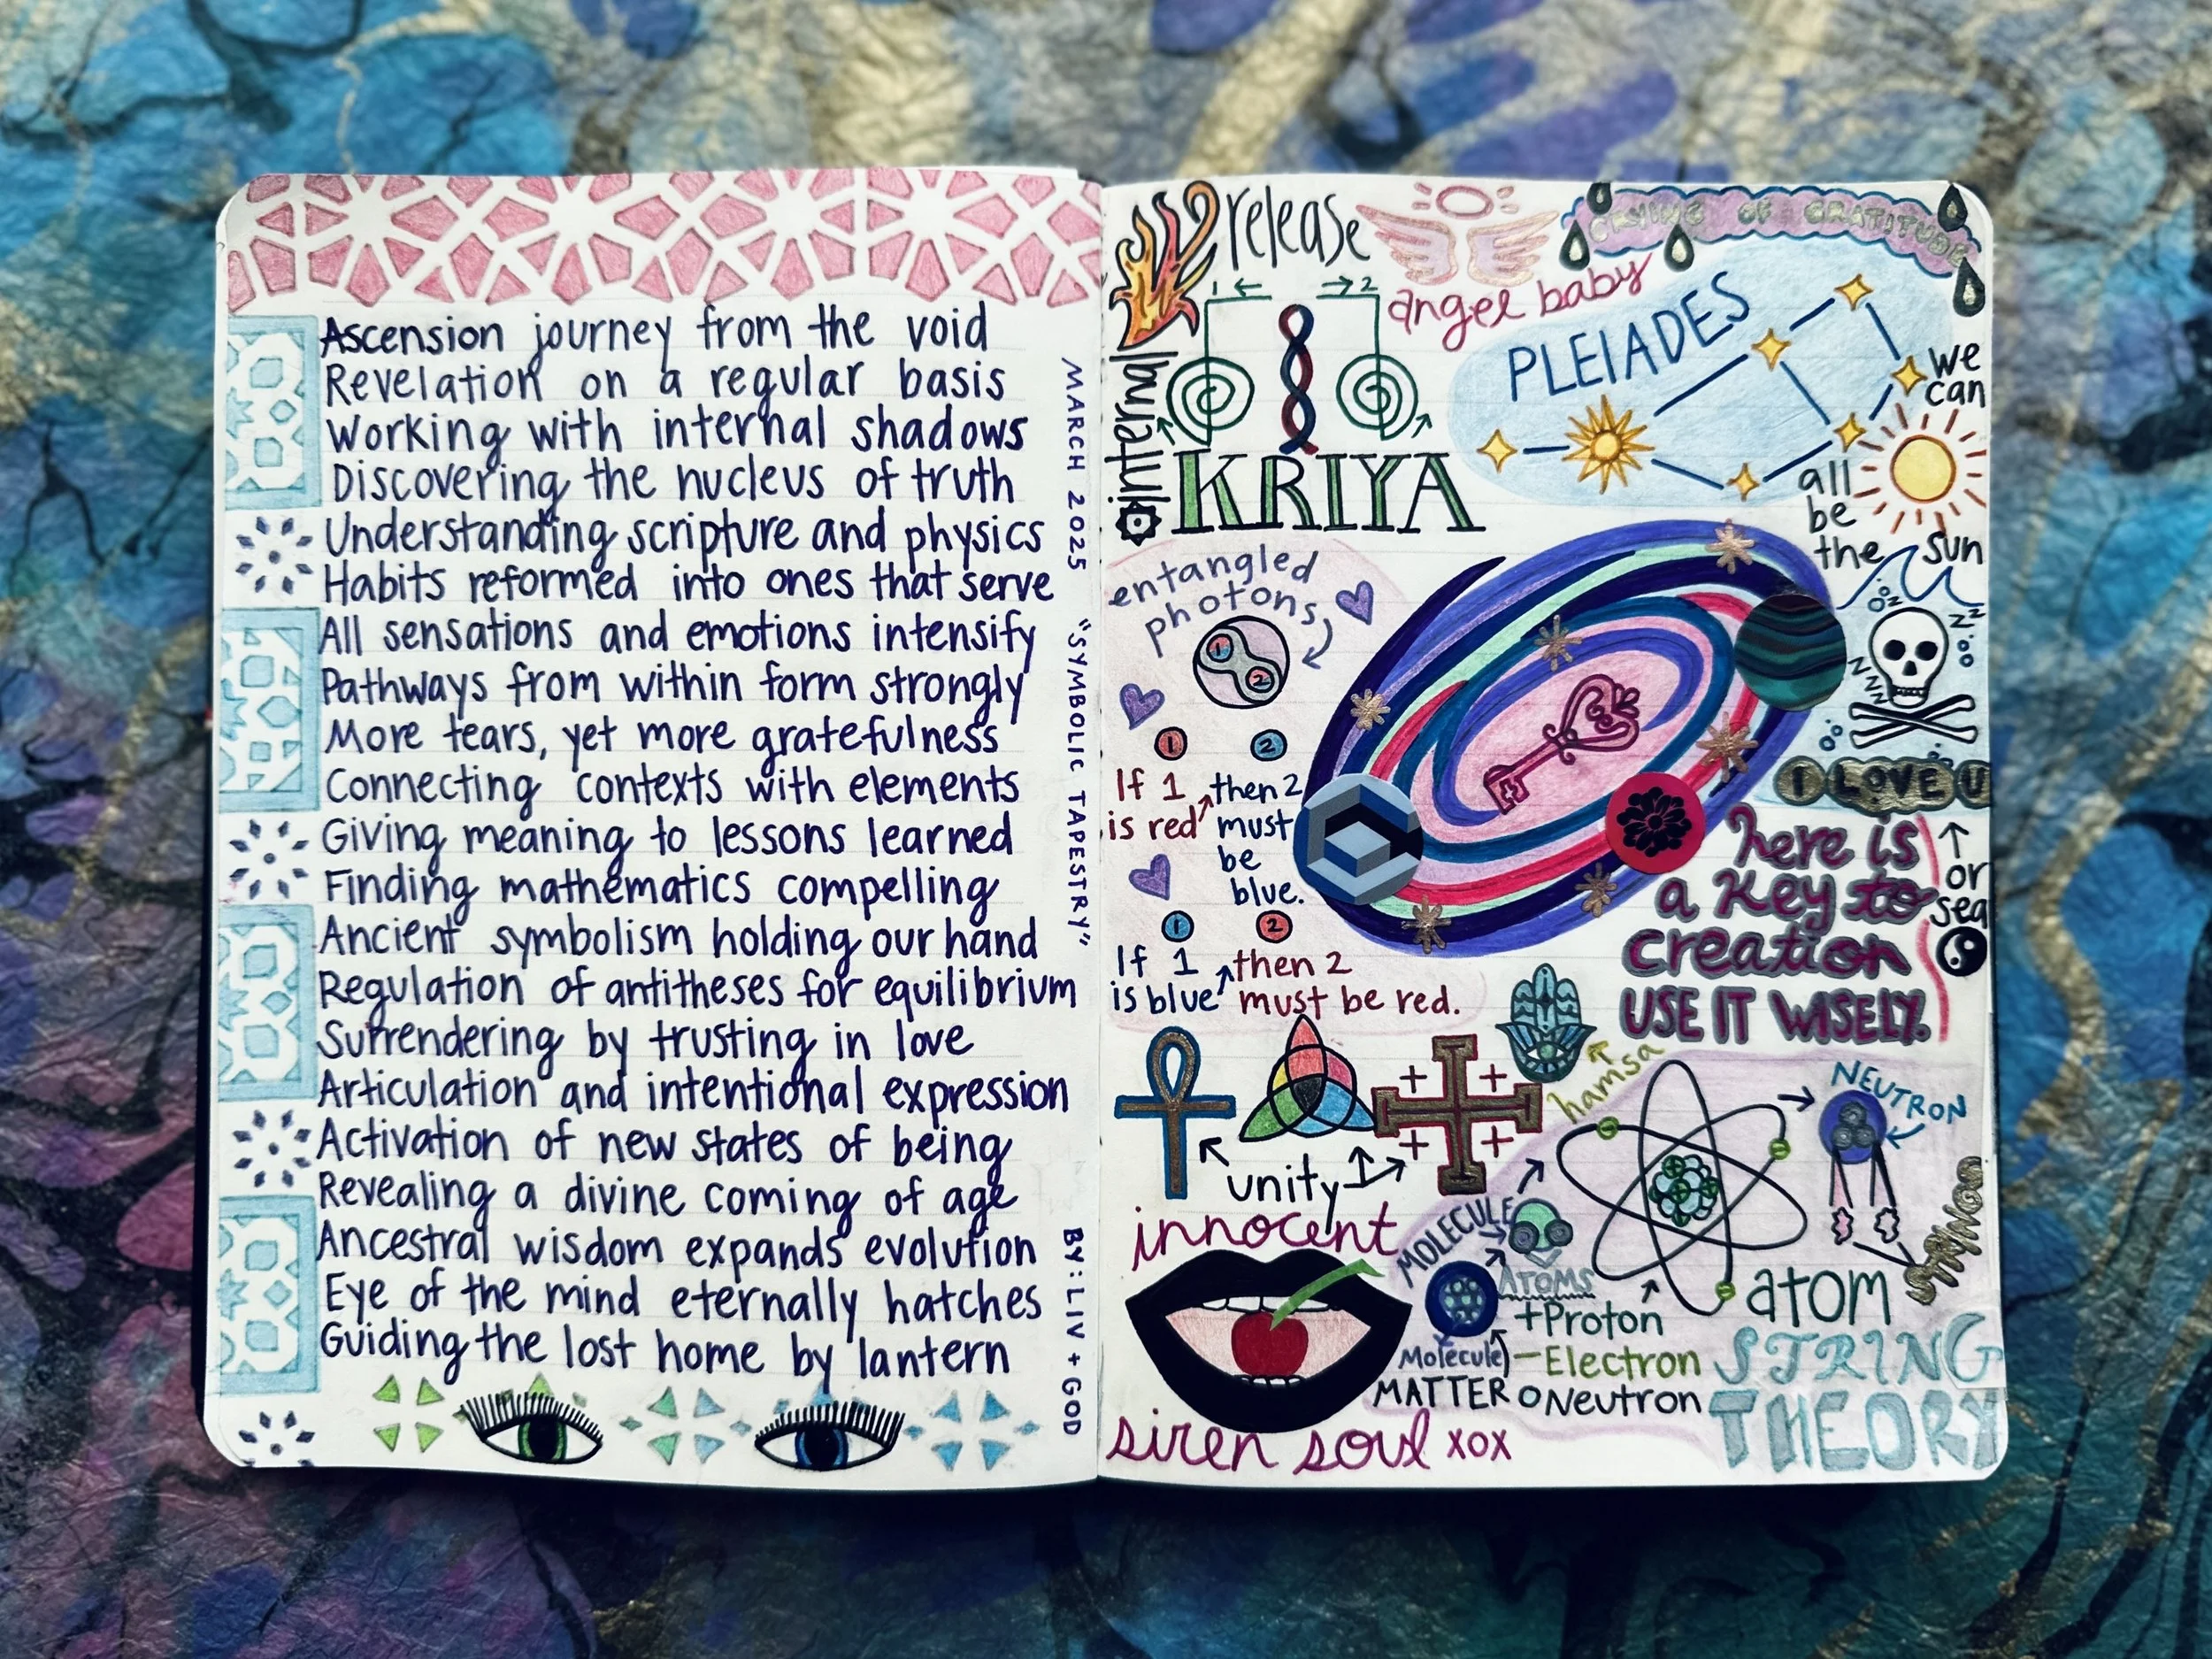 Ascension journey from the void
Revelation on a regular basis
Working with internal shadows
Discovering the nucleus of truth
Understanding scripture and physics
Habits reformed into ones that serve
All sensations and emotions intensify
Pathways from within form strongly
More tears, yet more gratefulness
Connecting contexts with elements
Giving meaning to lessons learned
Finding mathematics compelling
Ancient symbolism holding our hand
Regulation of antitheses for equilibrium
Surrendering by trusting in love
Articulation and intentional expression
Activation of new states of being
Revealing a divine coming of age
Ancestral wisdom expands evolution
Eye of the mind eternally hatches
Guiding the lost home by lantern
MARCH 2025 "SYMBOLIC TAPESTRY" BY: LIV + GOD
release
internal
1 2
KRIYA
angel baby
CRYING OF GRATITUDE
PLEIADES
we
can
all
be
the sun
entangled
photons
1
2
1 2
If 1 then 2
is red must
be
blue.
1 2
If 1 then 2
is blue must be red.
zz
zz
zzzz
I LOVE U
here is
a key to
creation
USE IT WISELY.
or
sea
hamsa
unity
innocent
siren soul xox
MOLECULE
ATOMS
Molecule
MATTER
+Proton
-Electron
Neutron
atom
NEUTRON
STRINGS
STRING
THEORY